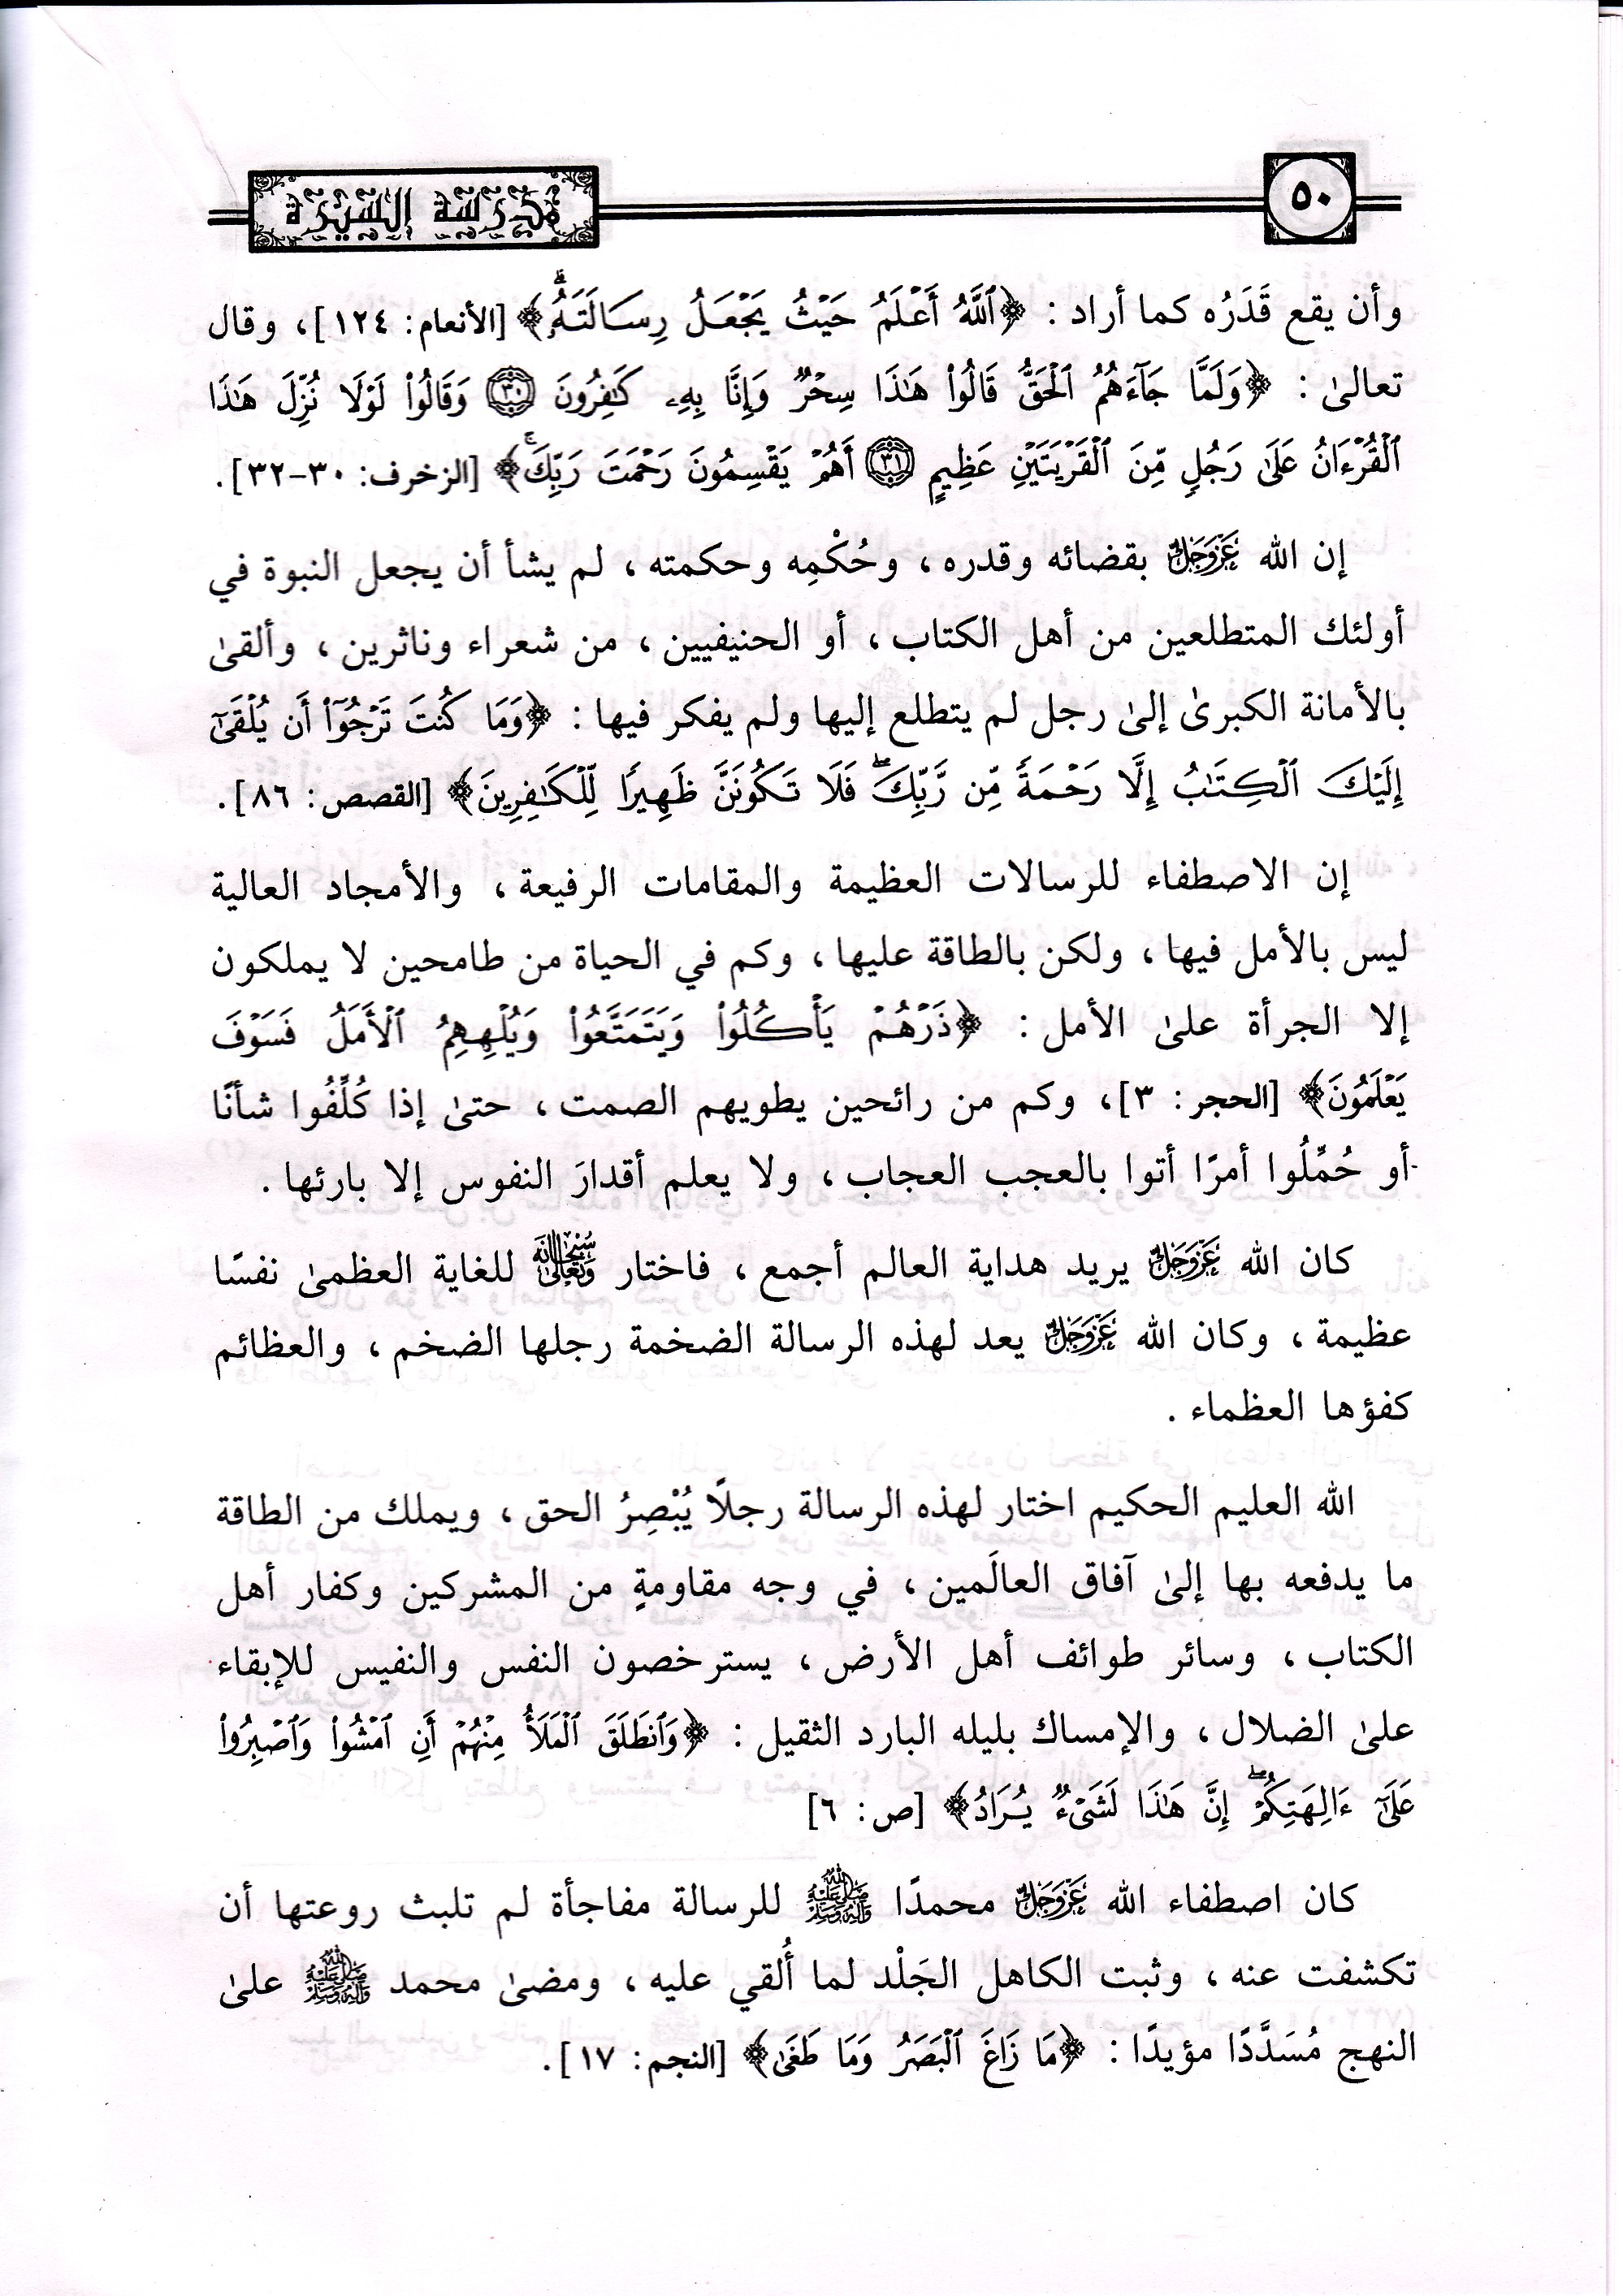 ٥٠
مدرسة السيرة
وأن يقع قَدَرُه كما أراد : ﴿ٱللَّهُ أَعۡلَمُ حَيۡثُ يَجۡعَلُ رِسَالَتَهُۥۗ﴾ [الأنعام: ١٢٤]، وقال
تعالىٰ : ﴿وَلَمَّا جَآءَهُمُ ٱلۡحَقُّ قَالُواْ هَٰذَا سِحۡرٞ وَإِنَّا بِهِۦ كَٰفِرُونَ ٣٠ وَقَالُواْ لَوۡلَا نُزِّلَ هَٰذَا
ٱلۡقُرۡءَانُ عَلَىٰ رَجُلٖ مِّنَ ٱلۡقَرۡيَتَيۡنِ عَظِيمٍ ٣١ أَهُمۡ يَقۡسِمُونَ رَحۡمَتَ رَبِّكَۚ﴾ [الزخرف: ٣٠-٣٢].
إن الله عَزَّوَجَلَّ بقضائه وقدره ، وحُكْمِه وحكمته ، لم يشأ أن يجعل النبوة في
أولئك المتطلعين من أهل الكتاب ، أو الحنيفيين ، من شعراء وناثرين ، وألقىٰ
بالأمانة الكبرىٰ إلىٰ رجل لم يتطلع إليها ولم يفكر فيها : ﴿وَمَا كُنتَ تَرۡجُوٓاْ أَن يُلۡقَىٰٓ
إِلَيۡكَ ٱلۡكِتَٰبُ إِلَّا رَحۡمَةٗ مِّن رَّبِّكَۖ فَلَا تَكُونَنَّ ظَهِيرٗا لِّلۡكَٰفِرِينَ﴾ [القصص: ٨٦].
إن الاصطفاء للرسالات العظيمة والمقامات الرفيعة ، والأمجاد العالية
ليس بالأمل فيها ، ولكن بالطاقة عليها ، وكم في الحياة من طامحين لا يملكون
إلا الجرأة علىٰ الأمل : ﴿ذَرۡهُمۡ يَأۡكُلُواْ وَيَتَمَتَّعُواْ وَيُلۡهِهِمُ ٱلۡأَمَلُ فَسَوۡفَ
يَعۡلَمُونَ﴾ [الحجر: ٣]، وكم من رائحين يطويهم الصمت ، حتىٰ إذا كُلِّفُوا شأنًا
أو حُمِّلُوا أمرًا أتوا بالعجب العجاب ، ولا يعلم أقدارَ النفوس إلا بارئها .
كان الله عَزَّوَجَلَّ يريد هداية العالم أجمع ، فاختار سُبْحَانَهُ وَتَعَالَىٰ للغاية العظمىٰ نفسًا
عظيمة ، وكان الله عَزَّوَجَلَّ يعد لهذه الرسالة الضخمة رجلها الضخم ، والعظائم
كفؤها العظماء .
الله العليم الحكيم اختار لهذه الرسالة رجلًا يُبْصِرُ الحق ، ويملك من الطاقة
ما يدفعه بها إلىٰ آفاق العالَمين ، في وجه مقاومةٍ من المشركين وكفار أهل
الكتاب ، وسائر طوائف أهل الأرض ، يسترخصون النفس والنفيس للإبقاء
علىٰ الضلال ، والإمساك بليله البارد الثقيل : ﴿وَٱنطَلَقَ ٱلۡمَلَأُ مِنۡهُمۡ أَنِ ٱمۡشُواْ وَٱصۡبِرُواْ
عَلَىٰٓ ءَالِهَتِكُمۡۖ إِنَّ هَٰذَا لَشَيۡءٞ يُرَادُ﴾ [ص: ٦]
كان اصطفاء الله عَزَّوَجَلَّ محمدًا ﷺ للرسالة مفاجأة لم تلبث روعتها أن
تكشفت عنه ، وثبت الكاهل الجَلْد لما أُلقي عليه ، ومضىٰ محمد ﷺ علىٰ
النهج مُسَدَّدًا مؤيدًا : ﴿مَا زَاغَ ٱلۡبَصَرُ وَمَا طَغَىٰ﴾ [النجم: ١٧].